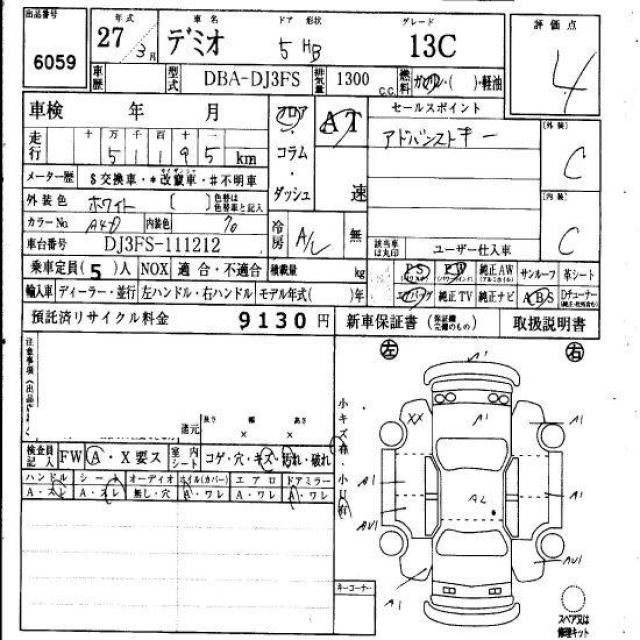 出品番号 年式 車名 ドア 形状 グレード 評価点
6059 27 3月 デミオ 5 HB 13C 4
車歴 型式 DBA-DJ3FS 排気量 1300 C.C. 燃料 ガソリン・( )・軽油
車検 年 月 フロア AT セールスポイント
走行 十 万 千 百 十 一 コラム アドバンストキー [外装]
5 1 1 9 5 km ダッシュ 速 C
メーター歴 $交換車・*改竄車・#不明車 [内装]
外装色 ホワイト ( ) 色替は色替車と記入 冷房 A/C 無 C
カラーNo 内装色 70
車台番号 DJ3FS-111212 該当車は丸印 ユーザー仕入車
乗車定員(5)人 NOX 適合・不適合 積載量 kg PS PW 純正AW サンルーフ 革シート
輸入車 ディーラー・並行 左ハンドル・右ハンドル モデル年式( )年 エアバッグ 純正TV 純正ナビ ABS Dチューナー
預託済リサイクル料金 9130円 新車保証書 取扱説明書
左 右
注意事項
小キズ有・小U有
還元 長さ 幅 高さ
× ×
XX A1 A1
検査員記入 FW A・X要ス 室内シート コゲ・穴・キズ・汚れ・破れ
ハンドル シート オーディオ ホイル(カバー) エアロ ドアミラー
A・スレ A・スレ 無し・穴 A・ワレ A・ワレ A・ワレ
A1 A2 A1
AU1 AU1
UA1
キーコーナー
A1
スペア又は
修理キット